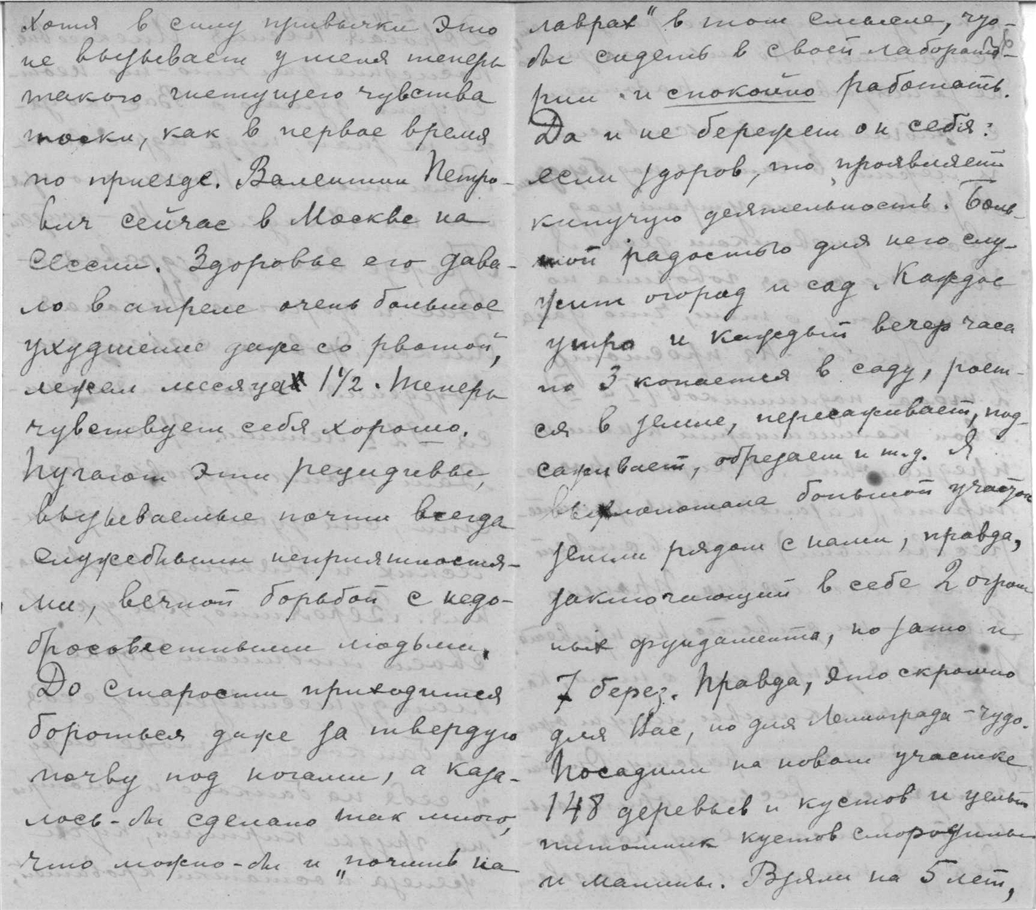 хотя в силу привычки это
не вызывает у меня теперь
такого гнетущего чувства
тоски, как в первое время
по приезде. Валентин Петро-
вич сейчас в Москве на
сессии. Здоровье его дава-
ло в апреле очень большое
ухудшение даже со рвотой,
лежал месяца 1 1/2. Теперь
чувствует себя хорошо.
Пугают эти рецидивы,
вызываемые почти всегда
служебными неприятностя-
ми, вечной борьбой с недо-
бросовестными людьми.
До старости приходится
бороться даже за твердую
почву под ногами, а каза-
лось-бы сделано так много,
что можно-бы и „почить на
лаврах" в том смысле, что-
бы сидеть в своей лаборато-
рии и спокойно работать.
Да и не бережет он себя:
если здоров, то проявляет
кипучую деятельность. Боль-
шой радостью для него слу-
жит огород и сад. Каждое
утро и каждый вечер часа
по 3 копается в саду, роет-
ся в земле, пересаживает, под-
саживает, обрезает и т.д. Я
выхлопотала большой участок
земли рядом с нами, правда,
заключающий в себе 2 огром
ных фундамента, но зато и
7 берез. Правда, это скромно
для Вас, но для Ленинграда – чудо.
Посадили на новом участке
148 деревьев и кустов и целый
питомник кустов смородины
и малины. Взяли на 5 лет,